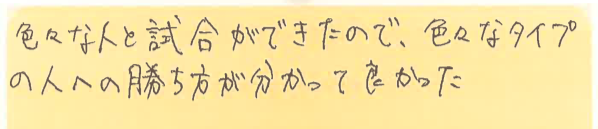 色々な人と試合ができたので、色々なタイプ
の人への勝ち方が分かって良かった